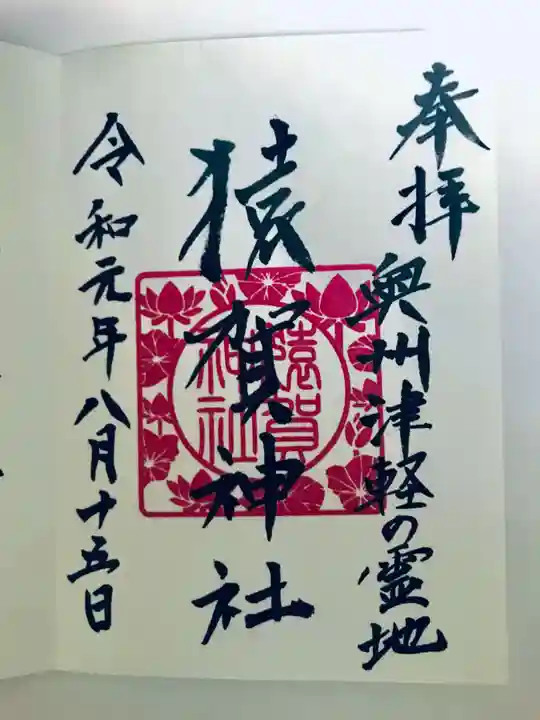 奉拝
奥州津軽の霊地
猿賀神社
猿賀
神社
令和元年八月十五日